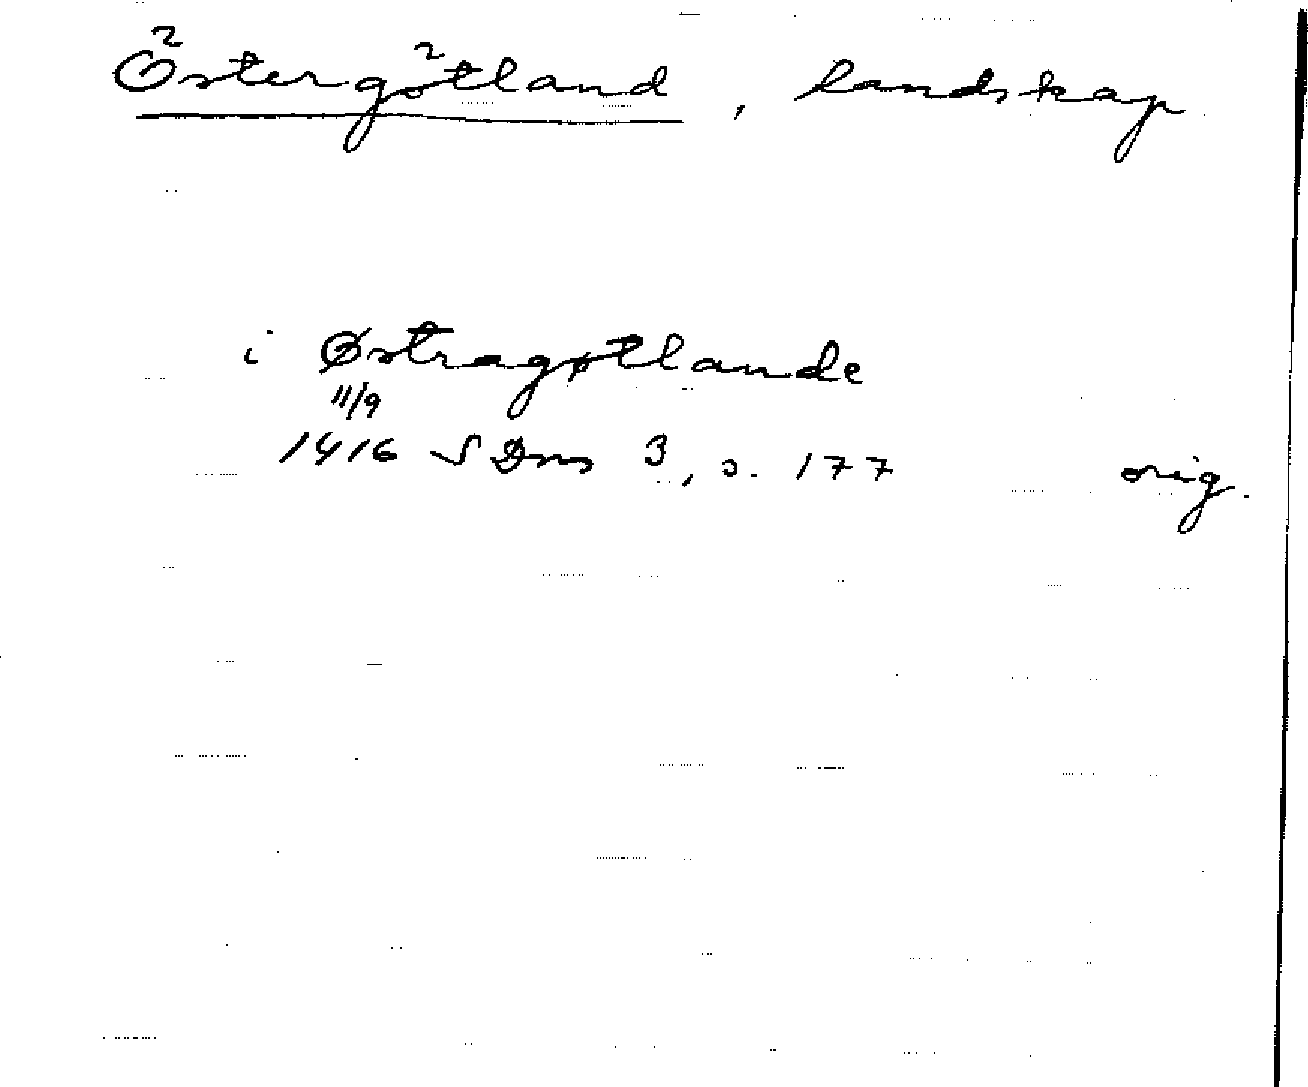 Östergötland, landskap
i Østragøtlande
11/9
1416 SDns 3, s. 177 orig.